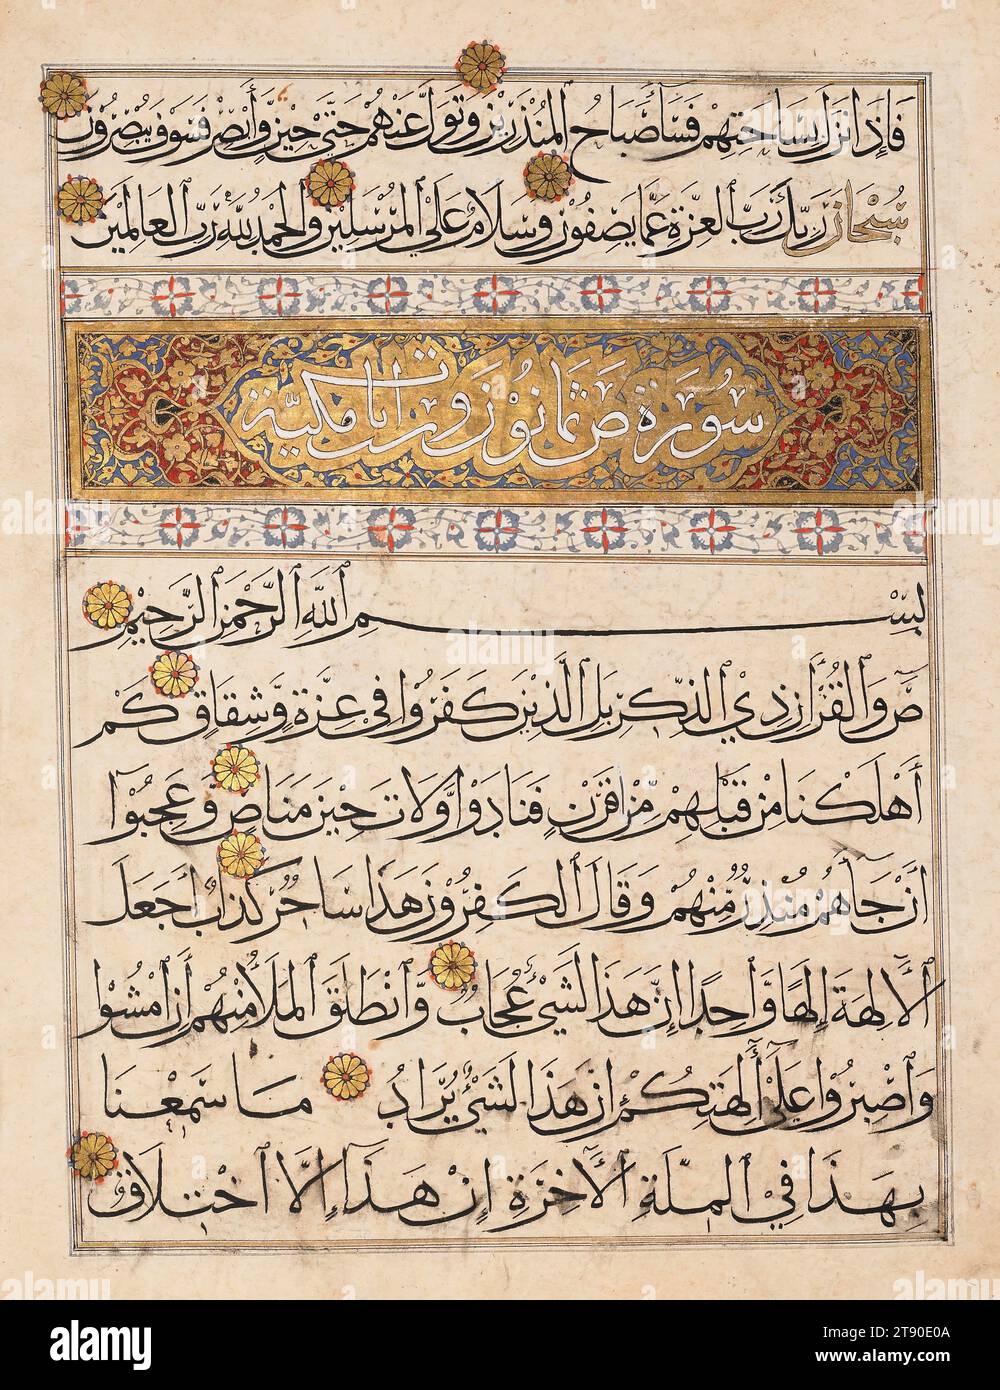 فَإِذَا نَزَلَ بِسَاحَتِهِمْ فَسَاءَ صَبَاحُ الْمُنْذَرِينَ وَتَوَلَّ عَنْهُمْ حَتَّى حِينٍ وَأَبْصِرْ فَسَوْفَ يُبْصِرُونَ
سُبْحَانَ رَبِّكَ رَبِّ الْعِزَّةِ عَمَّا يَصِفُونَ وَسَلَامٌ عَلَى الْمُرْسَلِينَ وَالْحَمْدُ لِلَّهِ رَبِّ الْعَالَمِينَ
سُورَة ص ثمانون و ايات مكية
بِسْمِ اللَّهِ الرَّحْمَنِ الرَّحِيمِ
صَ وَالْقُرْآنِ ذِي الذِّكْرِ بَلِ الَّذِينَ كَفَرُوا فِي عِزَّةٍ وَشِقَاقٍ كَمْ
أَهْلَكْنَا مِنْ قَبْلِهِمْ مِنْ قَرْنٍ فَنَادَوْا وَلَاتَ حِينَ مَنَاصٍ وَعَجِبُوا
أَنْ جَاءَهُمْ مُنْذِرٌ مِنْهُمْ وَقَالَ الْكَفِرُونَ هَذَا سَاحِرٌ كَذَّابٌ أَجَعَلَ
الْآلِهَةَ إِلَهًا وَاحِدًا إِنَّ هَذَا لَشَيْءٌ عُجَابٌ وَانْطَلَقَ الْمَلَأُ مِنْهُمْ أَنِ امْشُوا
وَاصْبِرُوا عَلَى آلِهَتِكُمْ إِنَّ هَذَا لَشَيْءٌ يُرَادُ مَا سَمِعْنَا
بِهَذَا فِي الْمِلَّةِ الْآخِرَةِ إِنْ هَذَا إِلَّا اخْتِلَاقٌ
alamy
Image ID: 2T90E0A
www.alamy.com